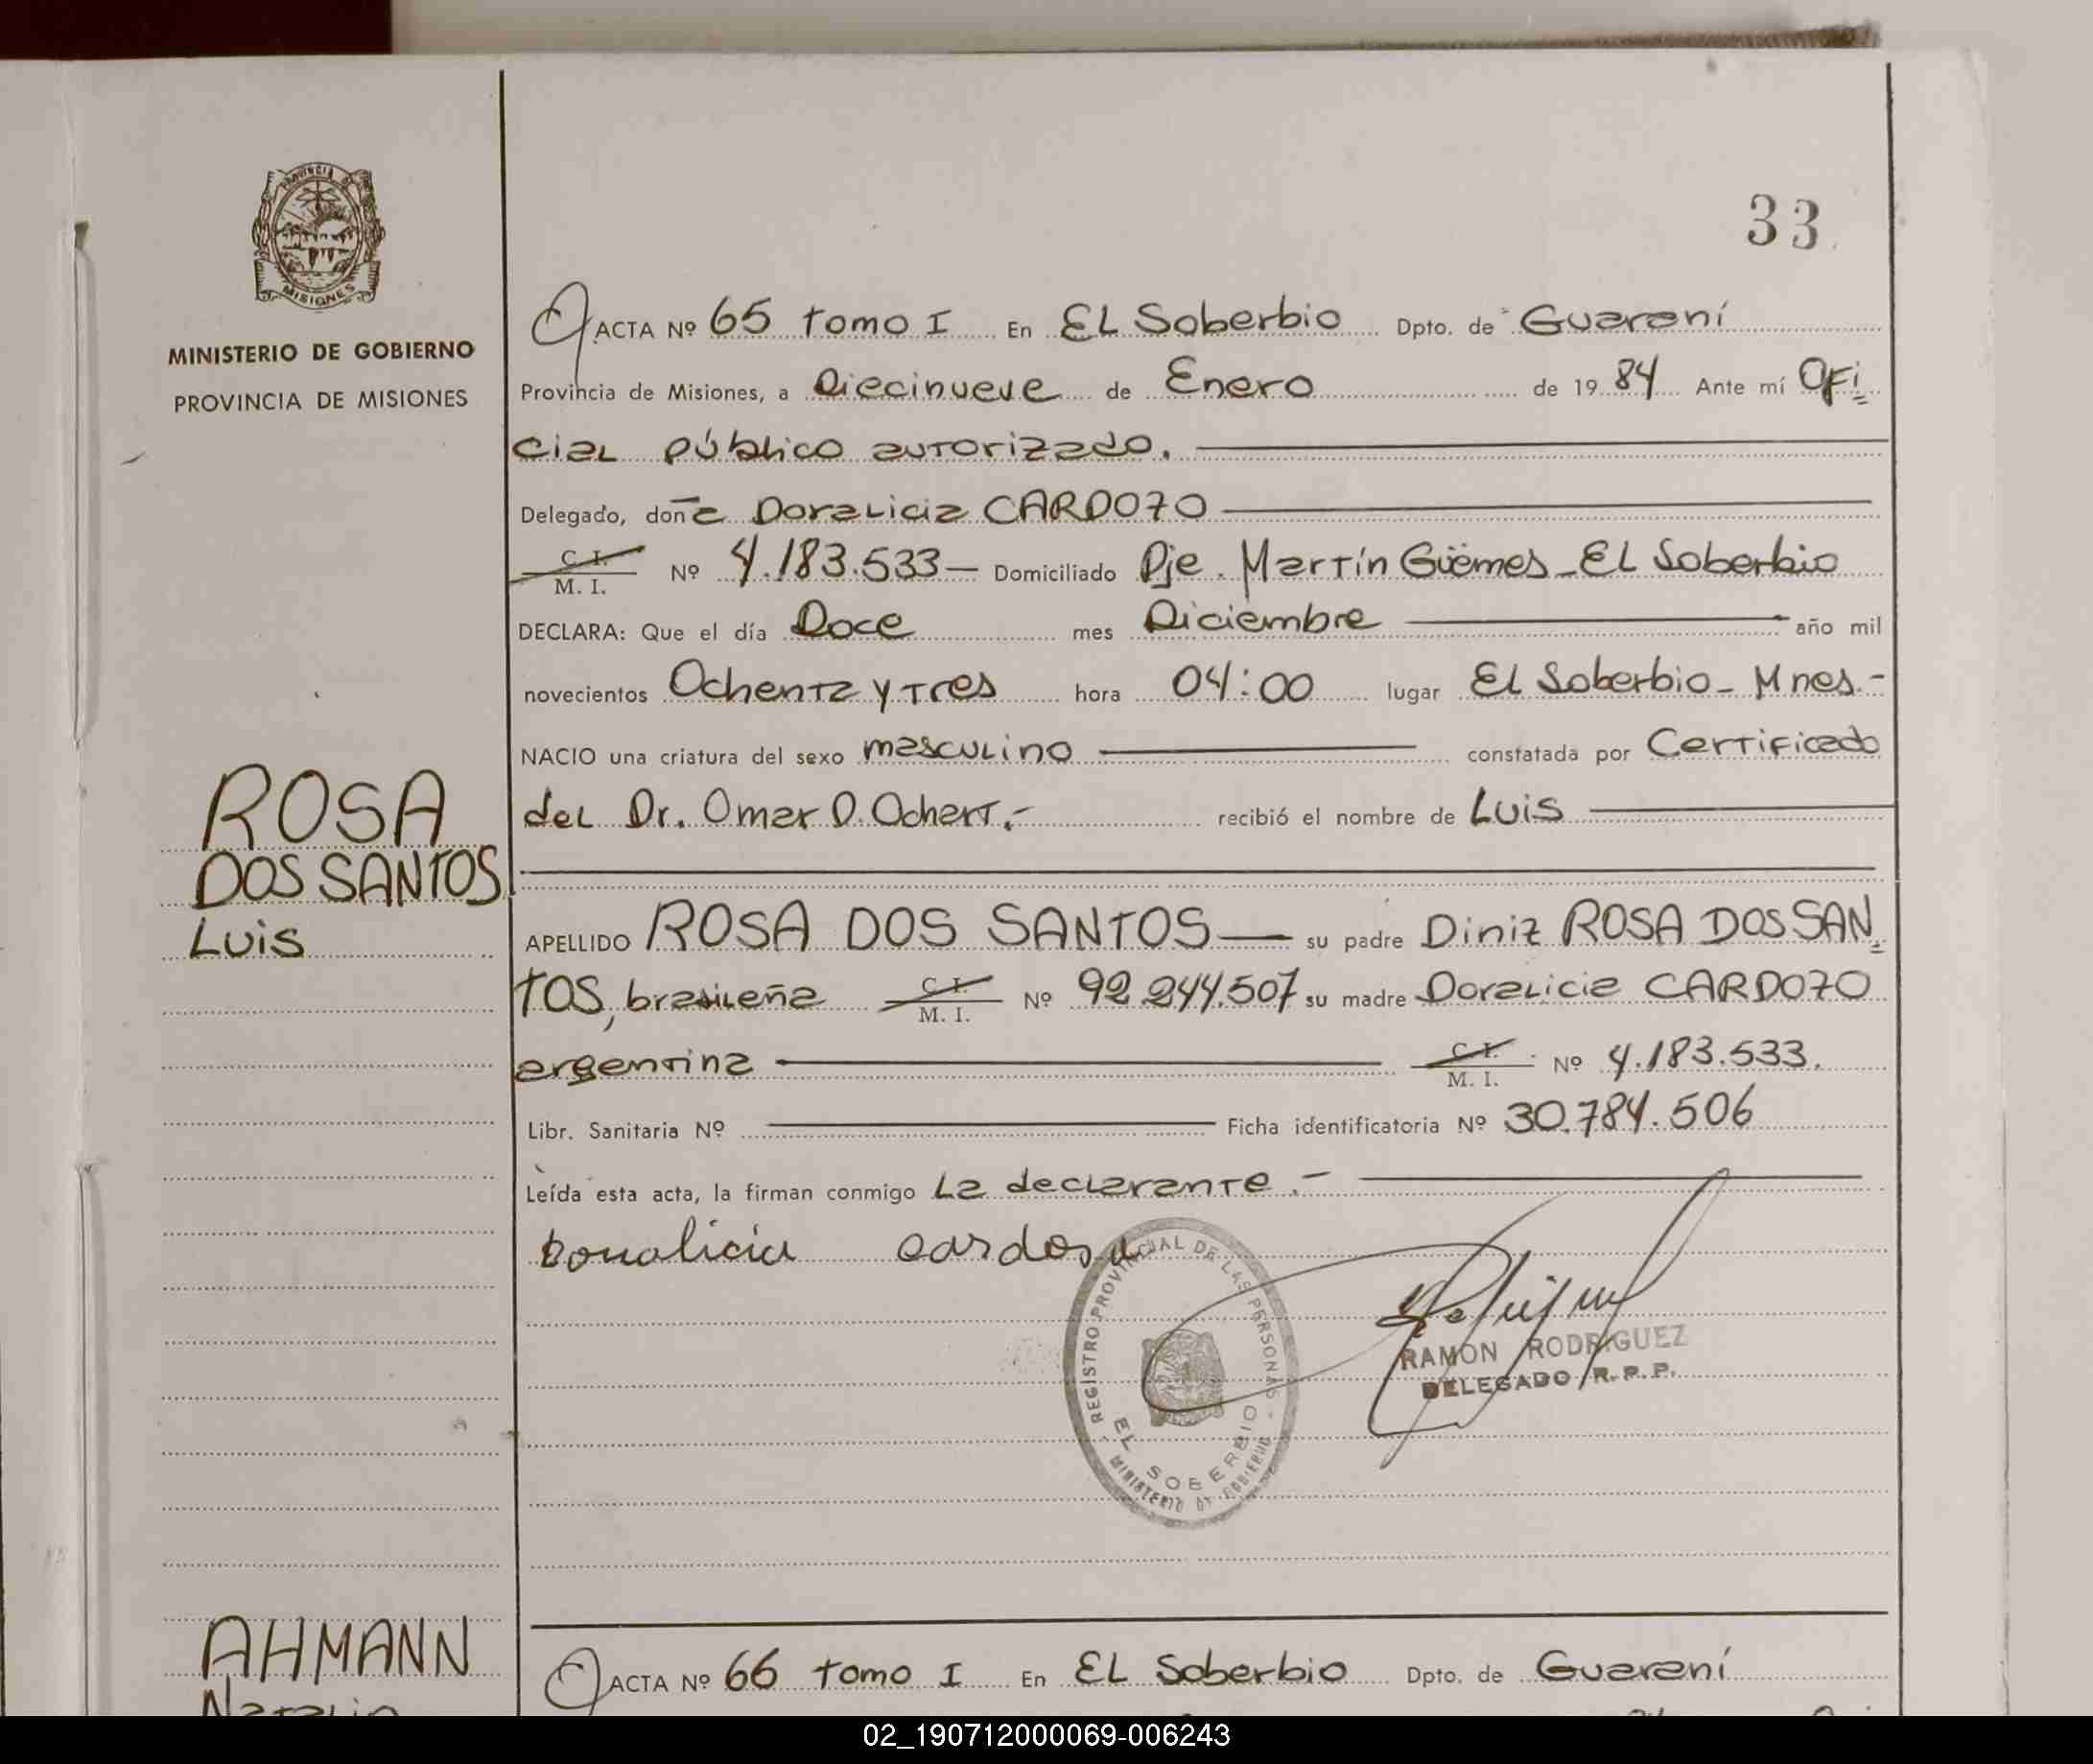 33
PROVINCIA DE
MISIONES
MINISTERIO DE GOBIERNO
PROVINCIA DE MISIONES
ACTA Nº 65 tomo I En EL Soberbio Dpto. de Guaraní
Provincia de Misiones, a Diecinueve de Enero de 19 84 Ante mí Ofi
cial público autorizado.
Delegado, donã Doralicia CARDOZO
C. I.
M. I. Nº 4.183.533— Domiciliado Pje. Martín Güemes - EL Soberbio
DECLARA: Que el día Doce mes Diciembre año mil
novecientos Ochenta y Tres hora 04:00 lugar El Soberbio - Mnes.-
NACIO una criatura del sexo masculino constatada por Certificado
del Dr. Omar D. Ochert.- recibió el nombre de Luis
ROSA
DOS SANTOS
Luis
APELLIDO ROSA DOS SANTOS — su padre Diniz ROSA DOS SAN
TOS, brasileña C. I. M. I. Nº 92.244.507 su madre Doralicia CARDOZO
argentina C. I. M. I. Nº 4.183.533.
Libr. Sanitaria Nº Ficha identificatoria Nº 30.784.506
Leída esta acta, la firman conmigo La declarante.-
Doralicia cardoso
REGISTRO PROVINCIAL DE LAS PERSONAS
EL SOBERBIO
MINISTERIO DE GOBIERNO
RAMON RODRIGUEZ
DELEGADO R. P. P.
AHMANN
ACTA Nº 66 tomo I En EL Soberbio Dpto. de Guaraní
02_190712000069-006243